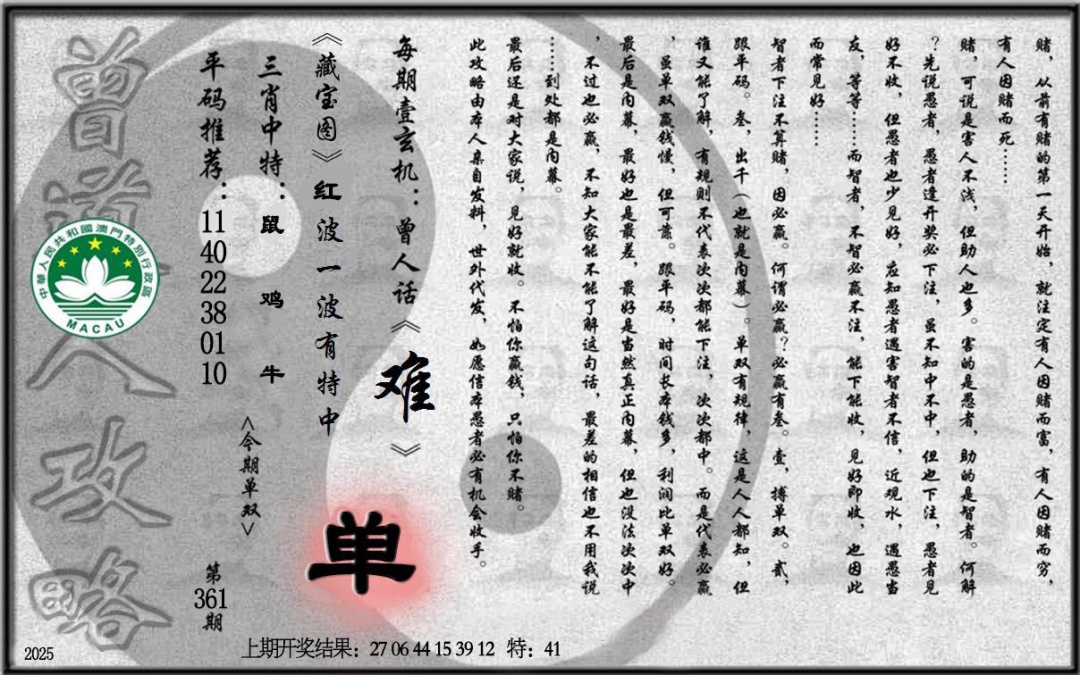 赌，从前有赌的第一天开始，就注定有人因赌而富，有人因赌而穷，
有人因赌而死……
赌，可说是害人不浅，但助人也多。害的是愚者，助的是智者。何解
？先说愚者，愚者逢开奖必下注，虽不知中不中，但也下注，愚者见
好不收，但愚者也少见好，应知愚者遇害智者不信，近观水，遇愚当
友，等等……而智者，不智必赢不注，能下能收，见好即收，也因此
而常见好……
智者下注不算赌，因必赢。何谓必赢？必赢有叁。壹，搏单双。贰，
跟平码。叁，出千（也就是内幕）。单双有规律，这是人人都知，但
谁又能了解，有规则不代表次次都能下注，次次都中。而是代表必赢
，虽单双赢钱慢，但可靠。跟平码，时间长本钱多，利润比单双好。
最后是内幕，最好也是最差，最好是当然真正内幕，但也没法次次中
，不过也必赢，不知大家能不能了解这句话，最差的相信也不用我说
……到处都是内幕。
最后还是对大家说，见好就收。不怕你赢钱，只怕你不赌。
此攻略由本人亲自发料，世外代发，如愿信本愚者必有机会收手。
每期壹玄机：曾人话《难》
《藏宝图》红波一波有特中
单
三肖中特：鼠 鸡 牛
<今期单双>
平码推荐：11 40 22 38 01 10
第361期
曾道人攻略
中華人民共和國澳門特別行政區
MACAU
2025
上期开奖结果：27 06 44 15 39 12 特：41